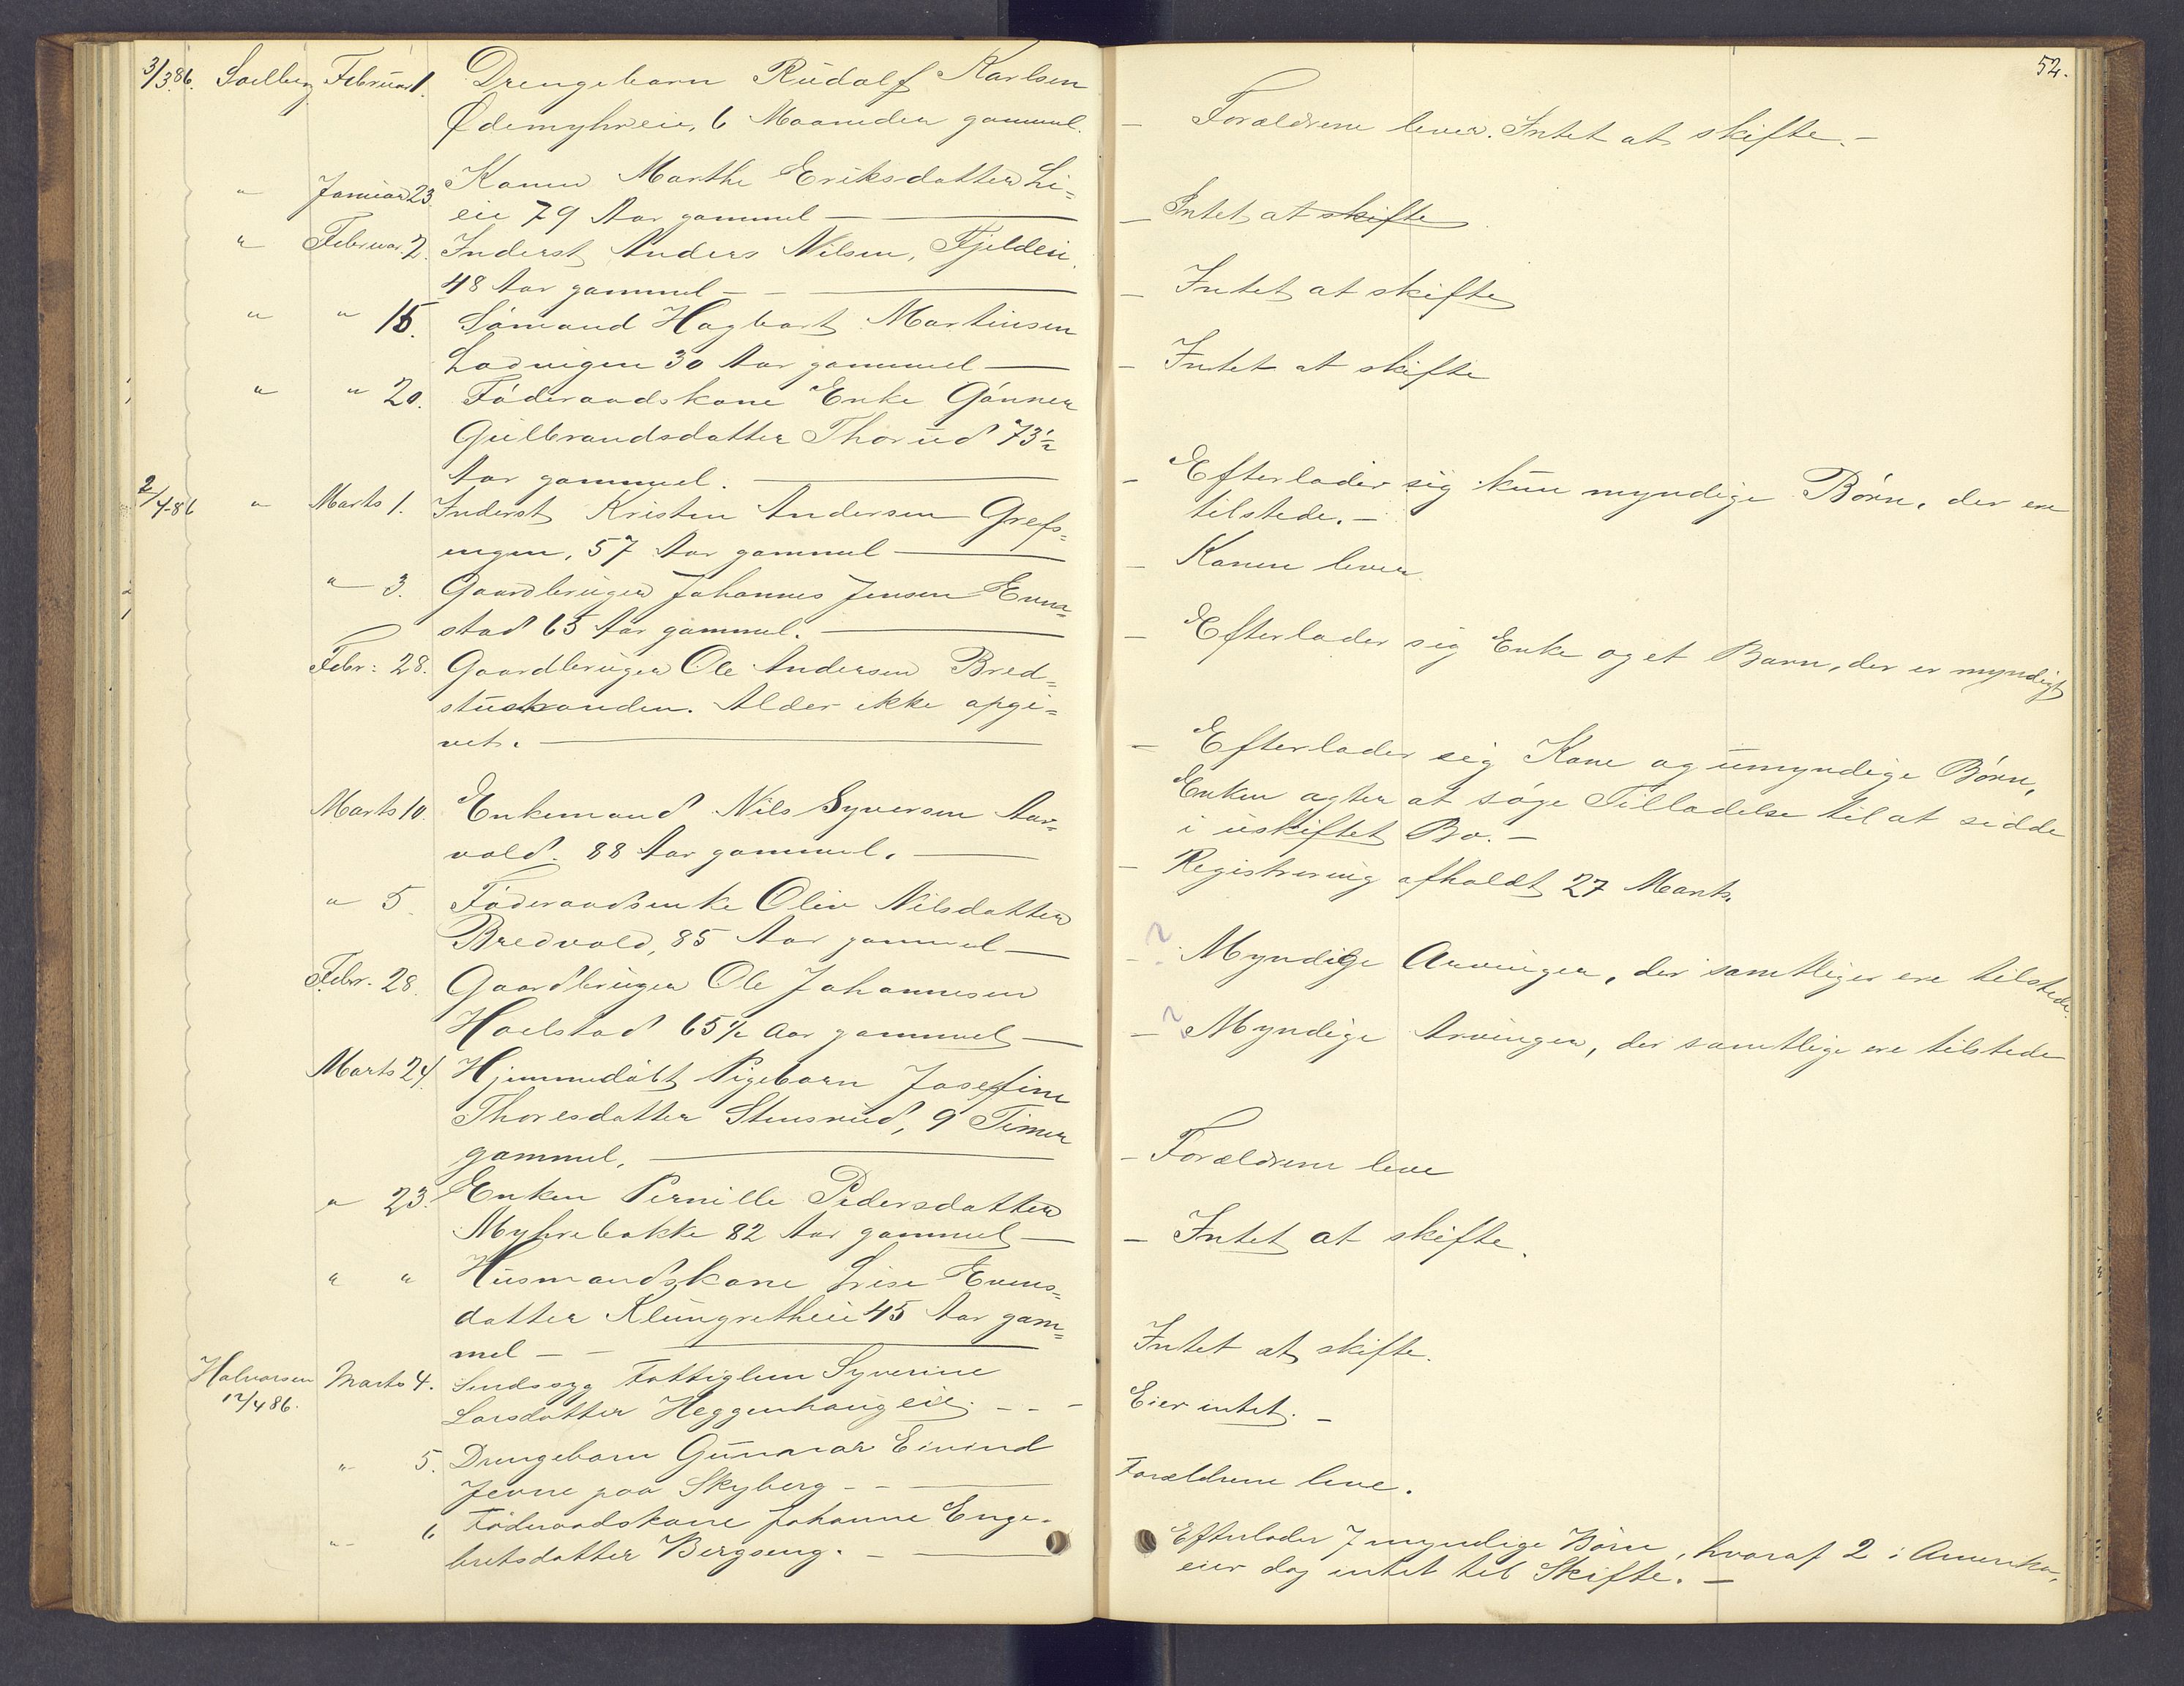 52.
3/3 86. Soelberg Februar 1. Drengebarn Rudolf Karlsen
Ødemyhreie, 6 Maaneder gammel.
— Forældrene lever. Intet at skifte. —
" Januar 23. Kone Marthe Eriksdatter Li=
eie 79 Aar gammel —
— Intet at skifte
" Februar 2. Inderst Anders Nilsen, Fjeldeie
48 Aar gammel —
— Intet at skifte
" " 15. Sømand Hagbart Martinsen
Ladvigen 30 Aar gammel —
— Intet at skifte
" " 20. Føderaadskone Enke Gønner
Gulbrandsdatter Thorud 73½
Aar gammel. —
— Efterlader sig kun myndige Børn, der ere
tilstede. —
2/4 86 " Marts 1. Inderst Kristen Andersen Grefs=
engen, 57 Aar gammel —
— Konen lever
" 3. Gaardbruger Johannes Jensen Even=
stad 65 Aar gammel. —
— Efterlader sig Enke og et Barn, der er myndigt
Febr: 28. Gaardbruger Ole Andersen Bred=
. Alder ikke opgi=
vet. —
— Efterlader sig Kone og umyndige Børn,
Enken agter at søge Tilladelse til at sidde
i uskiftet Bo. —
Marts 10. Enkemand Nils Syversen Aar=
vold. 88 Aar gammel. —
— Registrering afholdt 27 Marts
" 5. Føderaadsenke Oline Nilsdatter
Bredvold, 85 Aar gammel —
— ? Myndige Arvinger, der samtlige ere tilstede.
Febr. 28. Gaardbruger Ole Johannesen
Hoelstad 65½ Aar gammel —
— ? Myndige Arvinger, der samtlige ere tilstede
Marts 24. Hjemmedøbt Pigebarn Josefine
Thoresdatter Stensrud, 9 Timer
gammel. —
— Forældrene leve
" 23. Enken Pernille Pedersdatter
Myhrebakke 82 Aar gammel —
— Intet at skifte.
" " Husmandskone Lise Evens=
datter Klungretheie 45 Aar gam=
mel —
Intet at skifte.
Halvorsen 12/4 86. Marts 4. Sindssyg Fattiglem Syverine
Larsdatter Heggenhaugeie. —
Eier intet. —
" 5. Drengebarn Gunnar Eivind
Jevne paa Skyberg —
Forældrene leve.
" 6 Føderaadskone Johanne Enge=
bretsdatter Bergseng. —
Efterlader 7 myndige Børn, hvoraf 2 i Amerika,
eier dog intet til Skifte. —